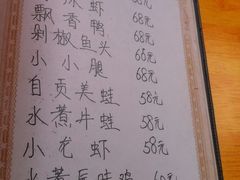 虾
飘香鸭 68元
剁椒鱼头 68元
小小腿 66元
自贡美蛙 58元
水煮牛蛙 58元
小龙虾 58元
鸡